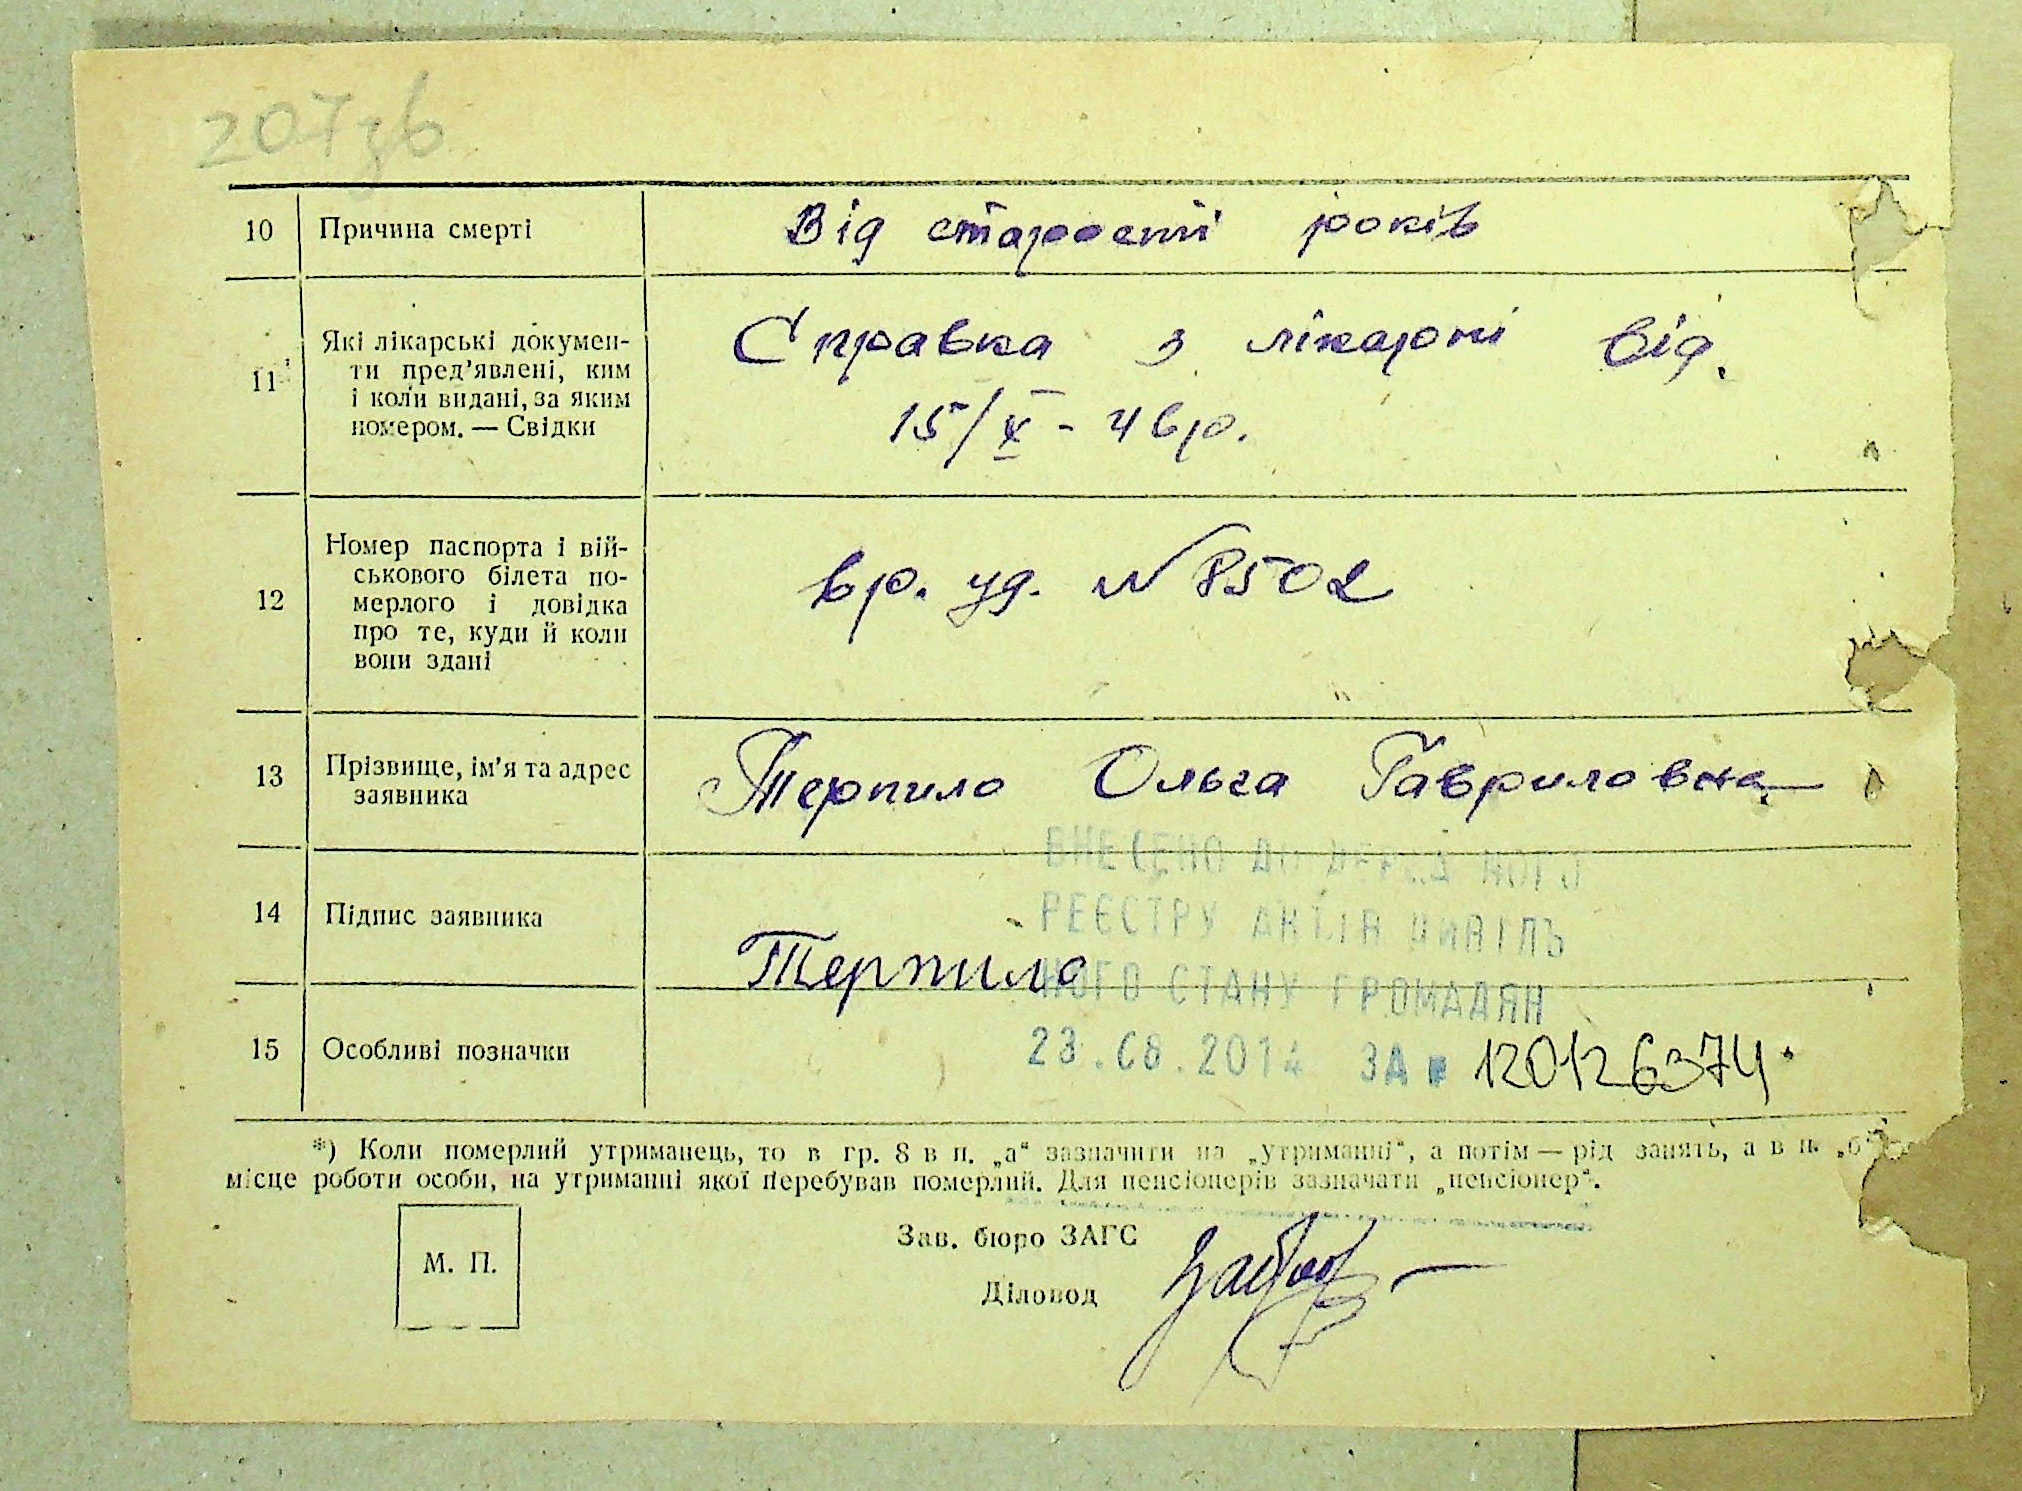 207зв
10 Причина смерті Від старости років
11 Які лікарські докумен-
ти пред’явлені, ким
і коли видані, за яким
номером. — Свідки
Справка з лікарні від.
15/X - 46р.
12 Номер паспорта і вій-
ськового білета по-
мерлого і довідка
про те, куди й коли
вони здані
вр. уд. № 8502
13 Прізвище, ім’я та адрес
заявника
Терпило Ольга Гавриловна
ВНЕСЕНО ДО ДЕРЖАВНОГО
РЕЄСТРУ АКТІВ ЦИВІЛЬ
НОГО СТАНУ ГРОМАДЯН
14 Підпис заявника Терпило
23.08.2012 ЗА № 120126374
15 Особливі позначки
*) Коли померлий утриманець, то в гр. 8 в п. „а“ зазначити на „утриманні“, а потім — рід занять, а в п. „б“
місце роботи особи, на утриманні якої перебував померлий. Для пенсіонерів зазначати „пенсіонер“.
Зав. бюро ЗАГС
М. П.
Діловод